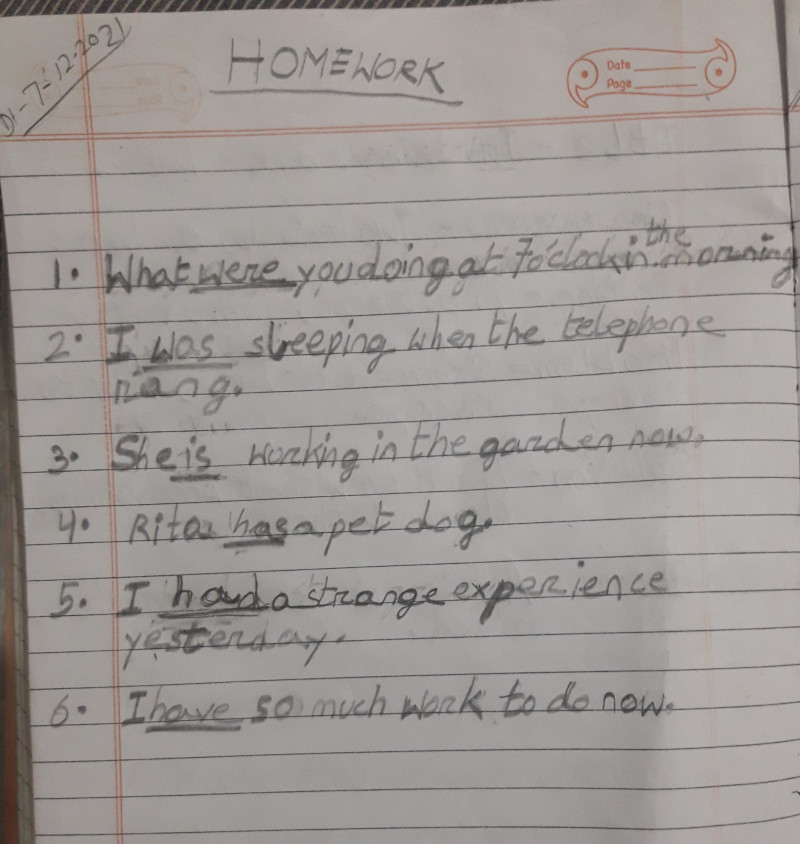 Dt-7-12-2021
HOMEWORK
Date
Page
1. What were you doing at 7o'clock in the morning
2. I was sleeping when the telephone
rang.
3. She is working in the garden now.
4. Rita has a pet dog.
5. I had a strange experience
yesterday.
6. I have so much work to do now.